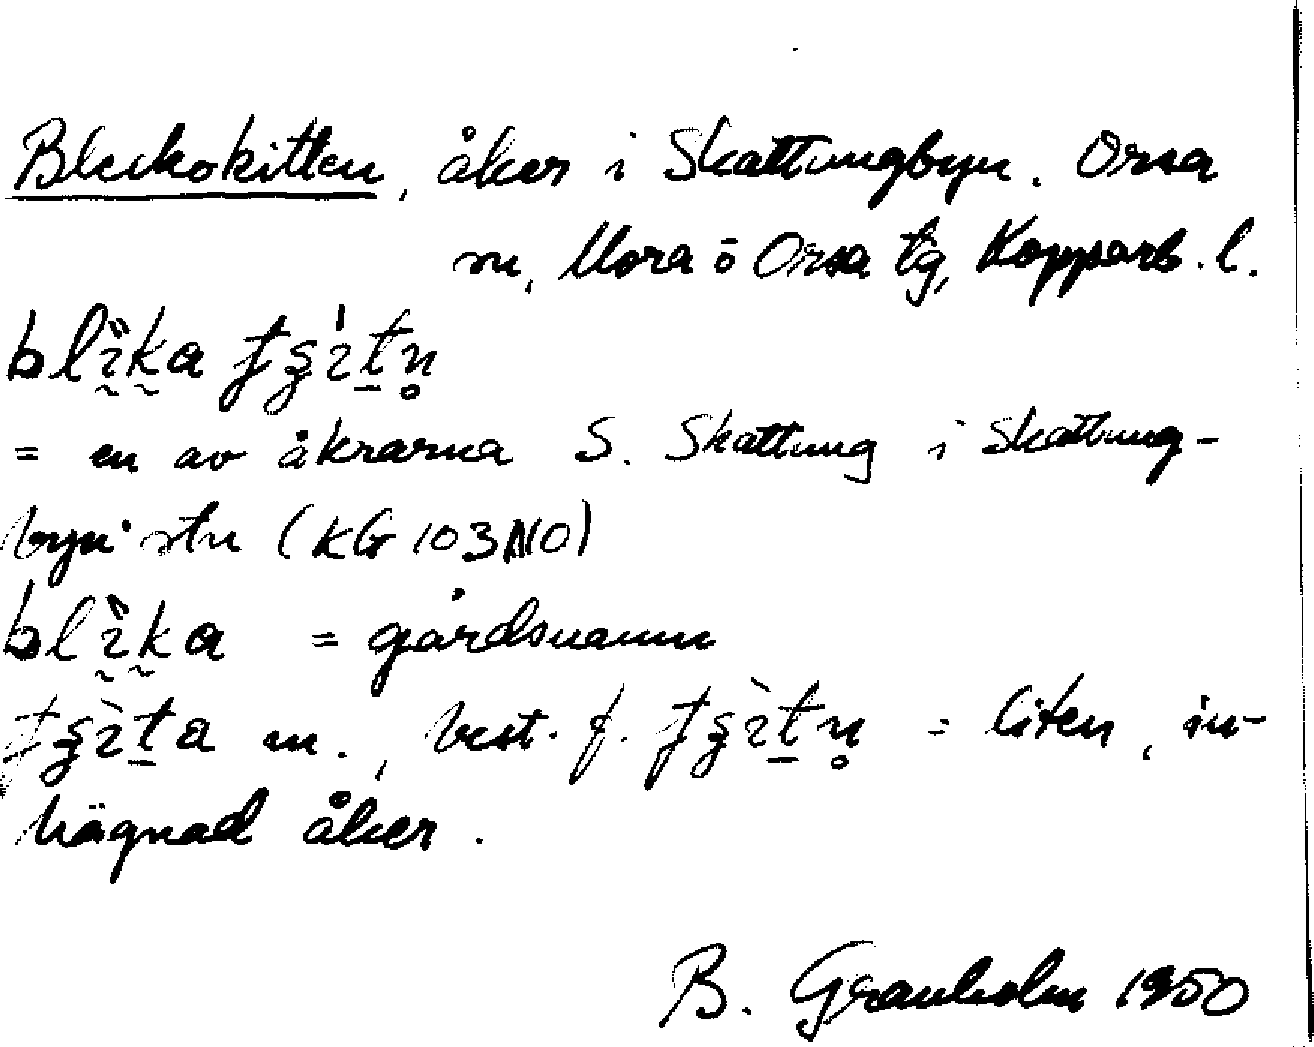 Bleckokitten, åker i Skattungbyn. Orsa
sn, Mora o Orsa tg, Kopparb. l.
= en av åkrarna S. Skattung i Skattung-
byn stn (KG 103 NO)
= gårdsnamn
m., best. f. = liten, in-
hägnad åker.
B. Granholm 1950